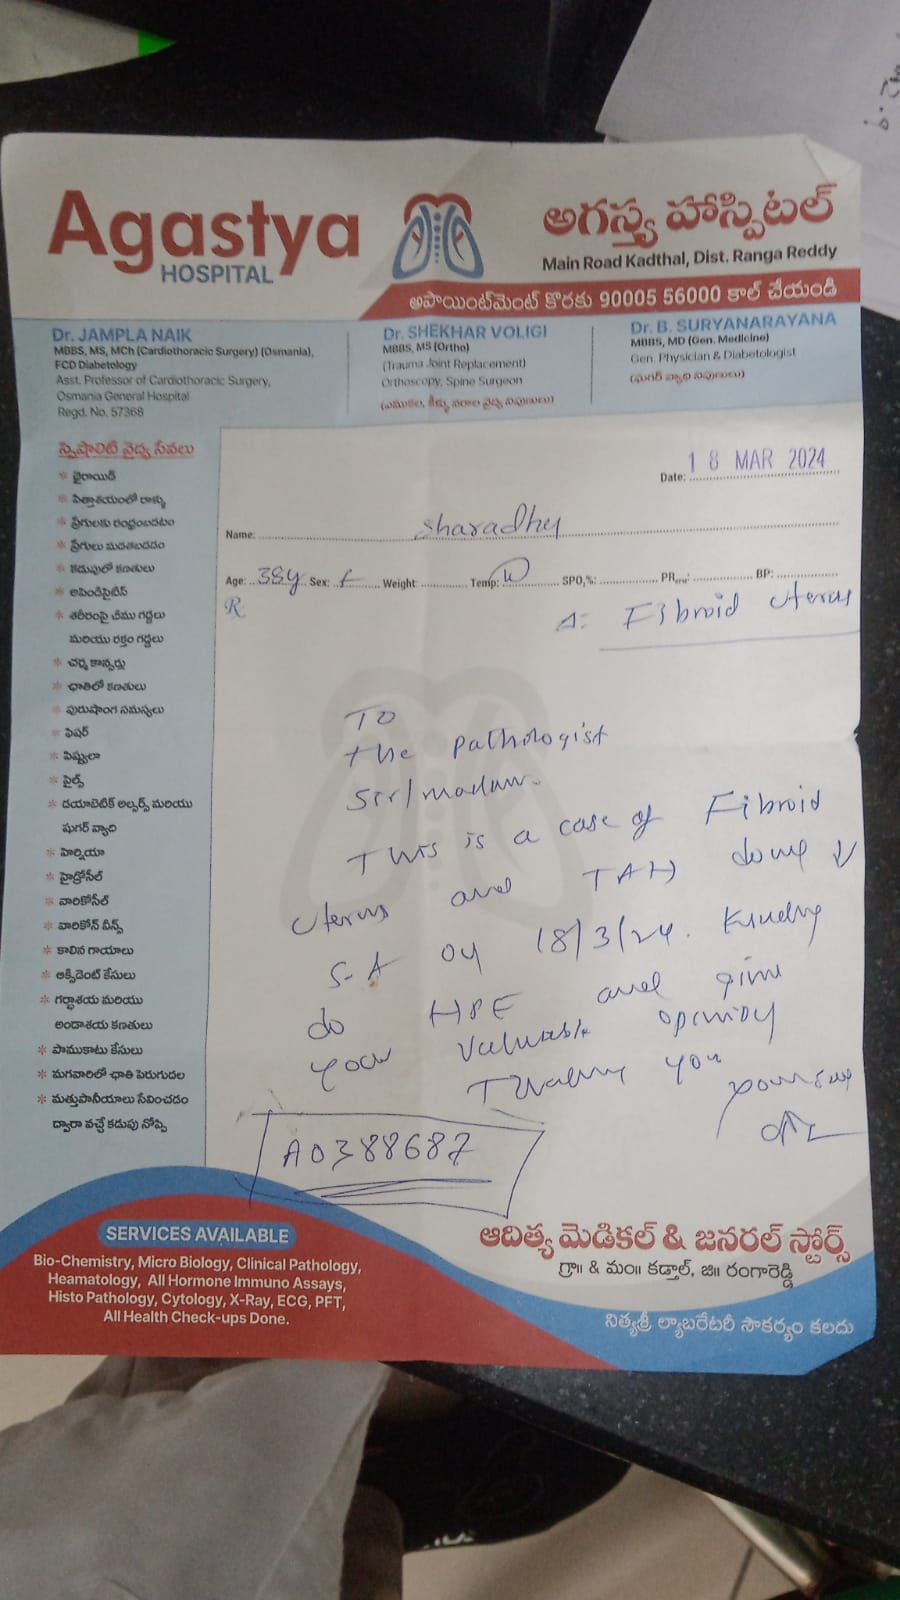 Agastya
HOSPITAL
అగస్త్య హాస్పిటల్
Main Road Kadthal, Dist. Ranga Reddy
అపాయింట్‌మెంట్ కొరకు 90005 56000 కాల్ చేయండి
Dr. JAMPLA NAIK
MBBS, MS, MCh (Cardiothoracic Surgery) (Osmania),
FCD Diabetology
Asst. Professor of Cardiothoracic Surgery,
Osmania General Hospital
Regd. No. 57368
Dr. SHEKHAR VOLIGI
MBBS, MS (Ortho)
(Trauma Joint Replacement)
Orthoscopy, Spine Surgeon
(ఎముకల, కీళ్ళు నరాల వైద్య నిపుణులు)
Dr. B. SURYANARAYANA
MBBS, MD (Gen. Medicine)
Gen. Physician & Diabetologist
(షుగర్ వ్యాధి నిపుణులు)
స్పెషాలిటీ వైద్య సేవలు
* థైరాయిడ్
* పిత్తాశయంలో రాళ్ళు
* ప్రేగులకు రంధ్రంబడటం
* ప్రేగులు మడతబడడం
* కడుపులో కణతులు
* అపెండిసైటిస్
* శరీరంపై చీము గడ్డలు
మరియు రక్తం గడ్డలు
* చర్మ కాన్సర్లు
* ఛాతిలో కణతులు
* పురుషాంగ సమస్యలు
* ఫిషర్
* ఫిష్టులా
* పైల్స్
* డయాబెటిక్ అల్సర్స్ మరియు
షుగర్ వ్యాధి
* హెర్నియా
* హైడ్రోసీల్
* వారికోసీల్
* వారికోస్ వీన్స్
* కాలిన గాయాలు
* ఆక్సిడెంట్ కేసులు
* గర్భాశయ మరియు
అండాశయ కణతులు
* పాముకాటు కేసులు
* మగవారిలో ఛాతి పెరుగుదల
* మత్తుపానీయాలు సేవించడం
ద్వారా వచ్చే కడుపు నొప్పి
Date: 18 MAR 2024
Name: Sharadhy
Age: 38y Sex: f Weight: Temp: SPO₂%: PR: BP:
R
Δ: Fibroid uterus
To
the pathologist
Sir/madam.
This is a case of Fibroid
uterus and TAH done ↓
S-A on 18/3/24. Kindly
do HPE and give
your valuable opinion
Thanking you
yours
A0388687
SERVICES AVAILABLE
Bio-Chemistry, Micro Biology, Clinical Pathology,
Heamatology, All Hormone Immuno Assays,
Histo Pathology, Cytology, X-Ray, ECG, PFT,
All Health Check-ups Done.
ఆదిత్య మెడికల్ & జనరల్ స్టోర్స్
గ్రా॥ & మం॥ కడ్తాల్, జి॥ రంగారెడ్డి
నిత్యశ్రీ ల్యాబరేటరీ సౌకర్యం కలదు